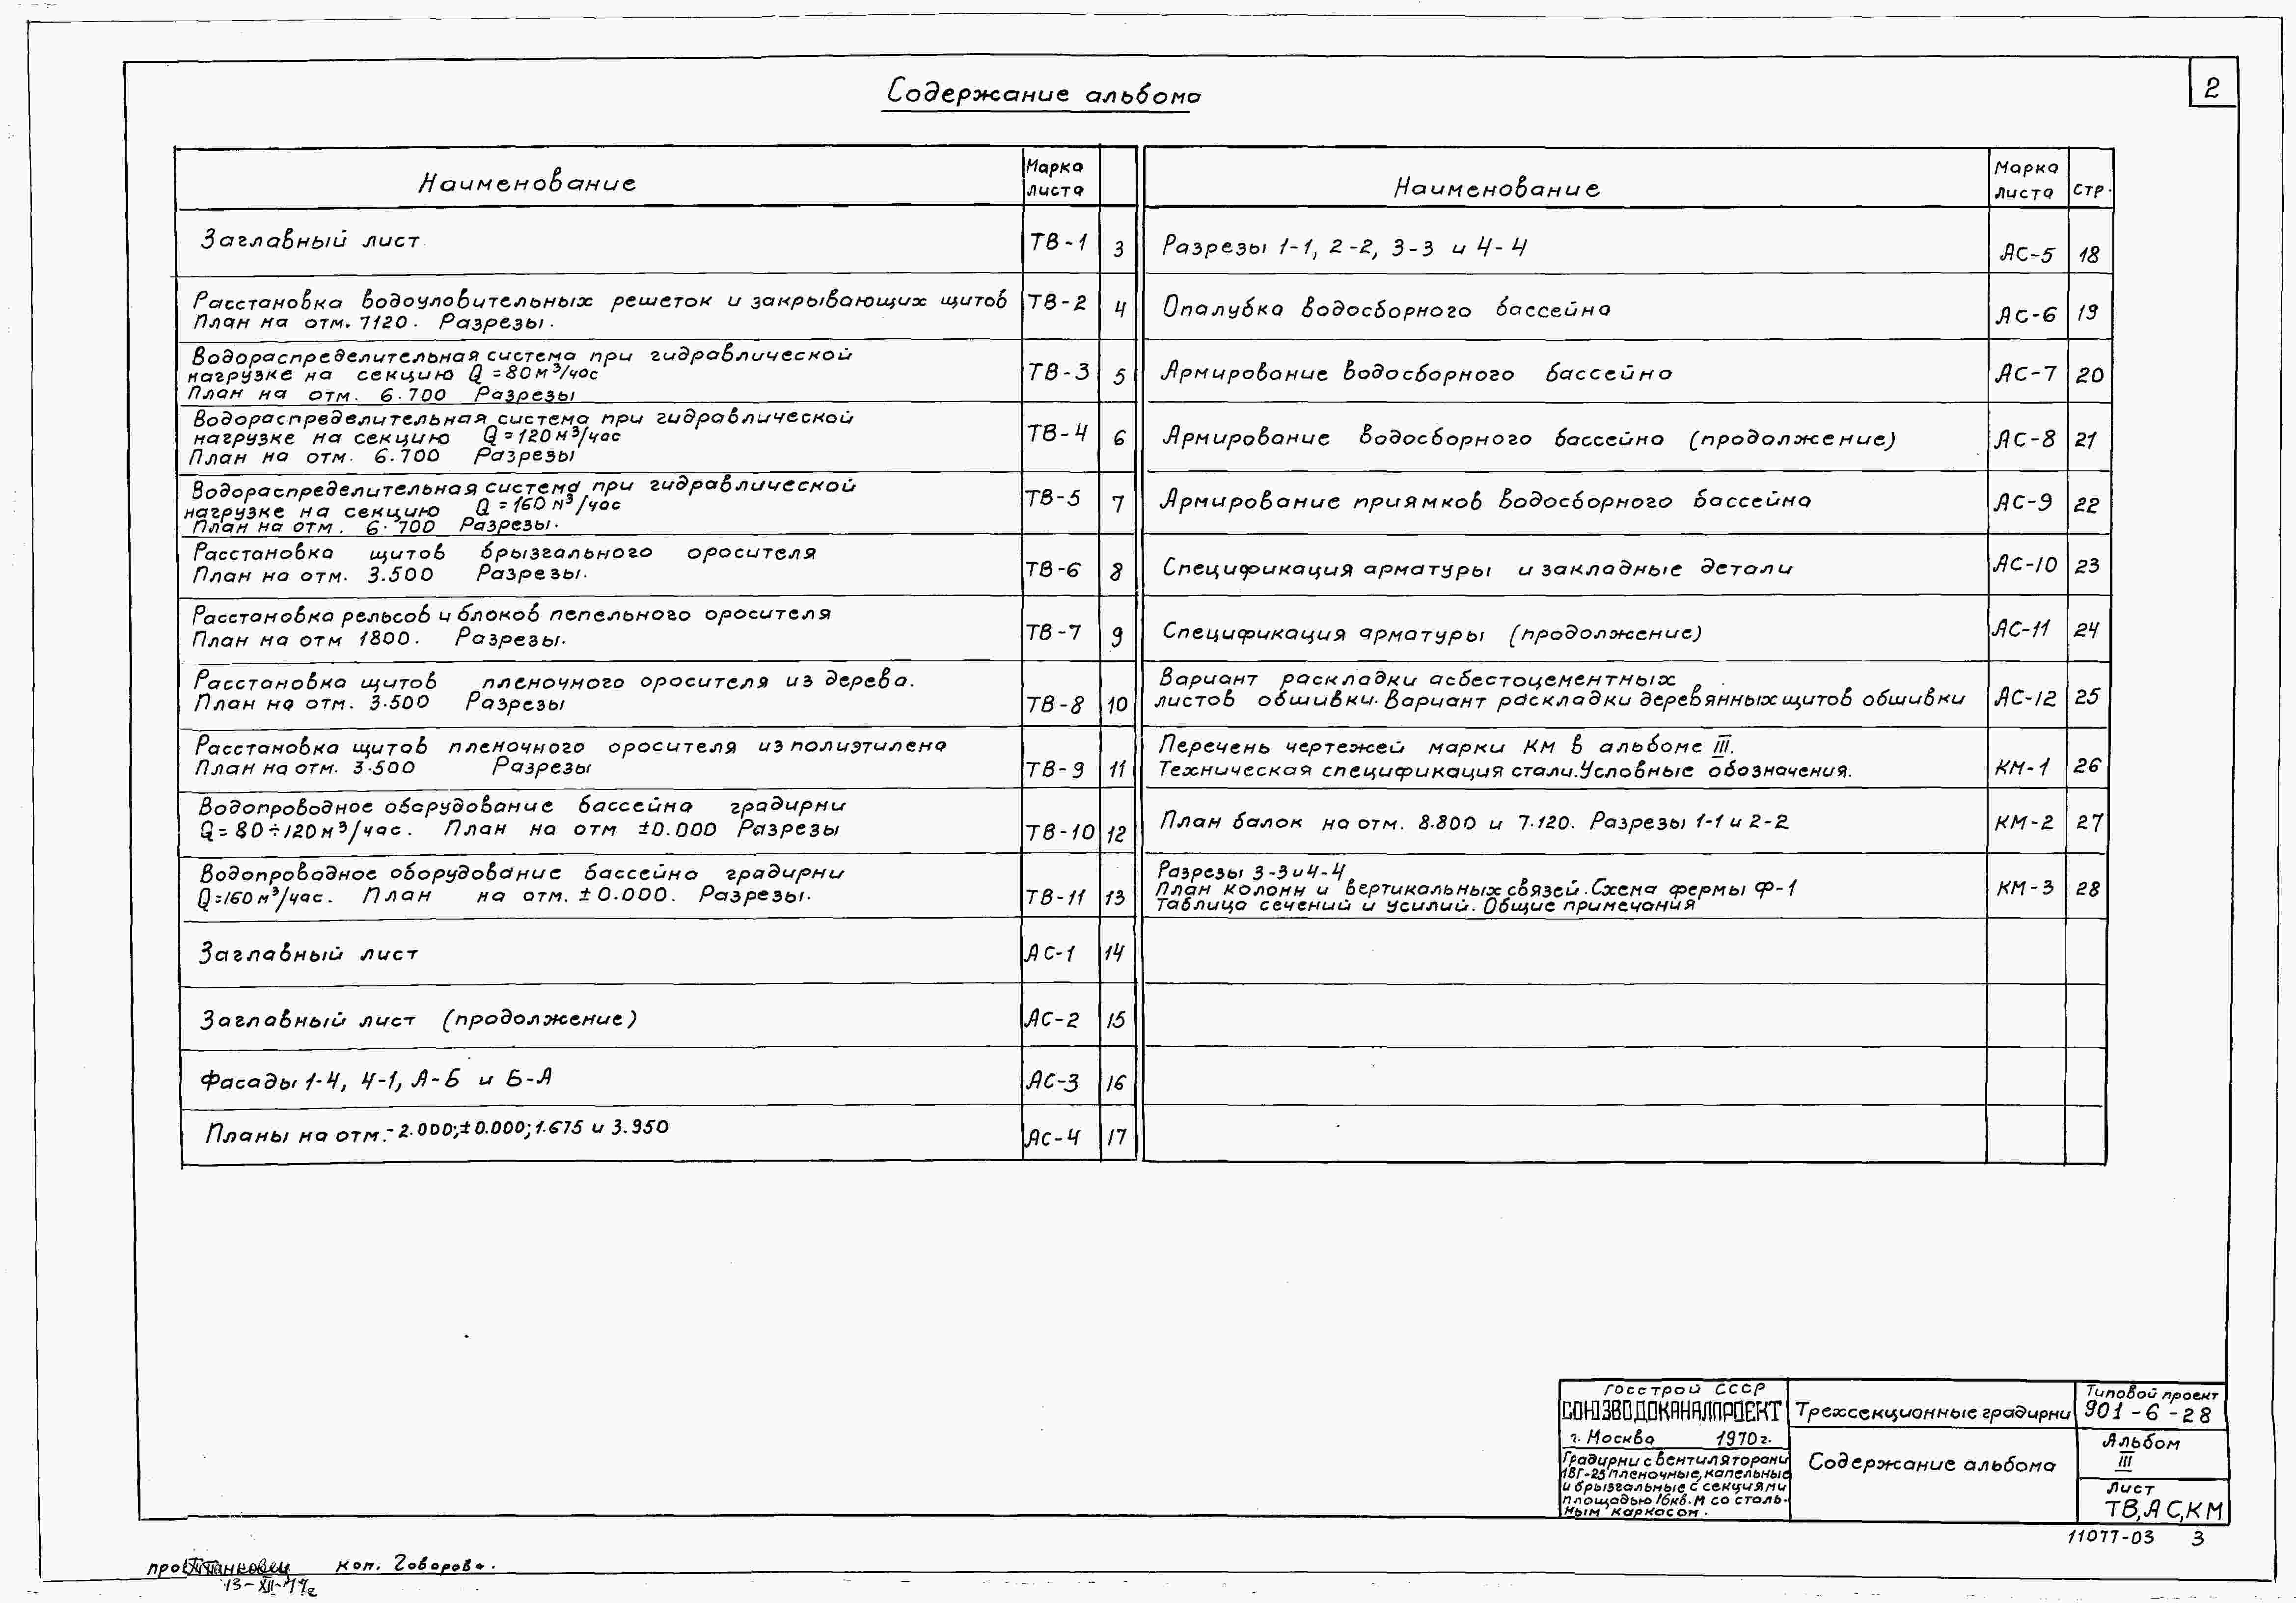 2
Содержание альбома
Наименование
Марка
листа
Заглавный лист
ТВ-1
3
Расстановка водоуловительных решеток и закрывающих щитов
План на отм. 7120. Разрезы.
ТВ-2
4
Водораспределительная система при гидравлической
нагрузке на секцию Q = 80 м³/час
План на отм. 6.700 Разрезы
ТВ-3
5
Водораспределительная система при гидравлической
нагрузке на секцию Q = 120 м³/час
План на отм. 6.700 Разрезы
ТВ-4
6
Водораспределительная система при гидравлической
нагрузке на секцию Q = 160 м³/час
План на отм. 6.700 Разрезы.
ТВ-5
7
Расстановка щитов брызгального оросителя
План на отм. 3.500 Разрезы.
ТВ-6
8
Расстановка рельсов и блоков пепельного оросителя
План на отм 1800. Разрезы.
ТВ-7
9
Расстановка щитов пленочного оросителя из дерева.
План на отм. 3.500 Разрезы
ТВ-8
10
Расстановка щитов пленочного оросителя из полиэтилена
План на отм. 3.500 Разрезы
ТВ-9
11
Водопроводное оборудование бассейна градирни
Q = 80÷120 м³/час. План на отм ±0.000 Разрезы
ТВ-10
12
Водопроводное оборудование бассейна градирни
Q=160 м³/час. План на отм. ±0.000. Разрезы.
ТВ-11
13
Заглавный лист
АС-1
14
Заглавный лист (продолжение)
АС-2
15
Фасады 1-4, 4-1, А-Б и Б-А
АС-3
16
Планы на отм.-2.000; ±0.000; 1.675 и 3.950
АС-4
17
Наименование
Марка
листа
стр.
Разрезы 1-1, 2-2, 3-3 и 4-4
АС-5
18
Опалубка водосборного бассейна
АС-6
19
Армирование водосборного бассейна
АС-7
20
Армирование водосборного бассейна (продолжение)
АС-8
21
Армирование приямков водосборного бассейна
АС-9
22
Спецификация арматуры и закладные детали
АС-10
23
Спецификация арматуры (продолжение)
АС-11
24
Вариант раскладки асбестоцементных
листов обшивки. Вариант раскладки деревянных щитов обшивки
АС-12
25
Перечень чертежей марки КМ в альбоме III.
Техническая спецификация стали. Условные обозначения.
КМ-1
26
План балок на отм. 8.800 и 7.120. Разрезы 1-1 и 2-2
КМ-2
27
Разрезы 3-3 и 4-4
План колонн и вертикальных связей. Схема фермы Ф-1
Таблица сечений и усилий. Общие примечания
КМ-3
28
Госстрой СССР
СОЮЗВОДОКАНАЛПРОЕКТ
г. Москва 1970г.
Градирни с вентиляторами
1ВГ-25 пленочные, капельные
и брызгальные с секциями
площадью 16кв.м со сталь-
ным каркасом.
Трехсекционные градирни
Содержание альбома
Типовой проект
901-6-28
Альбом
III
Лист
ТВ, АС, КМ
11077-03 3
коп. Говорова.